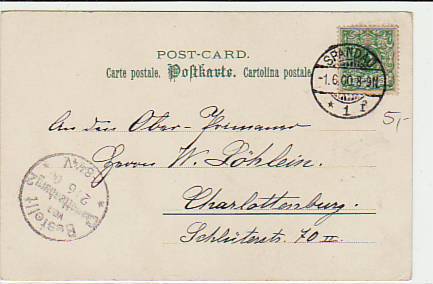 POST-CARD.
Carte postale. Postkarte. Cartolina postale
SPANDAU
-1.6.00.8-9N.
* 1 f
5,-
An den Ober-Primaner
Herrn W. Löhlein.
Charlottenburg.
Schlüterstr. 70 II.
Bestellt
vom
Charlottenburg 2
2/6